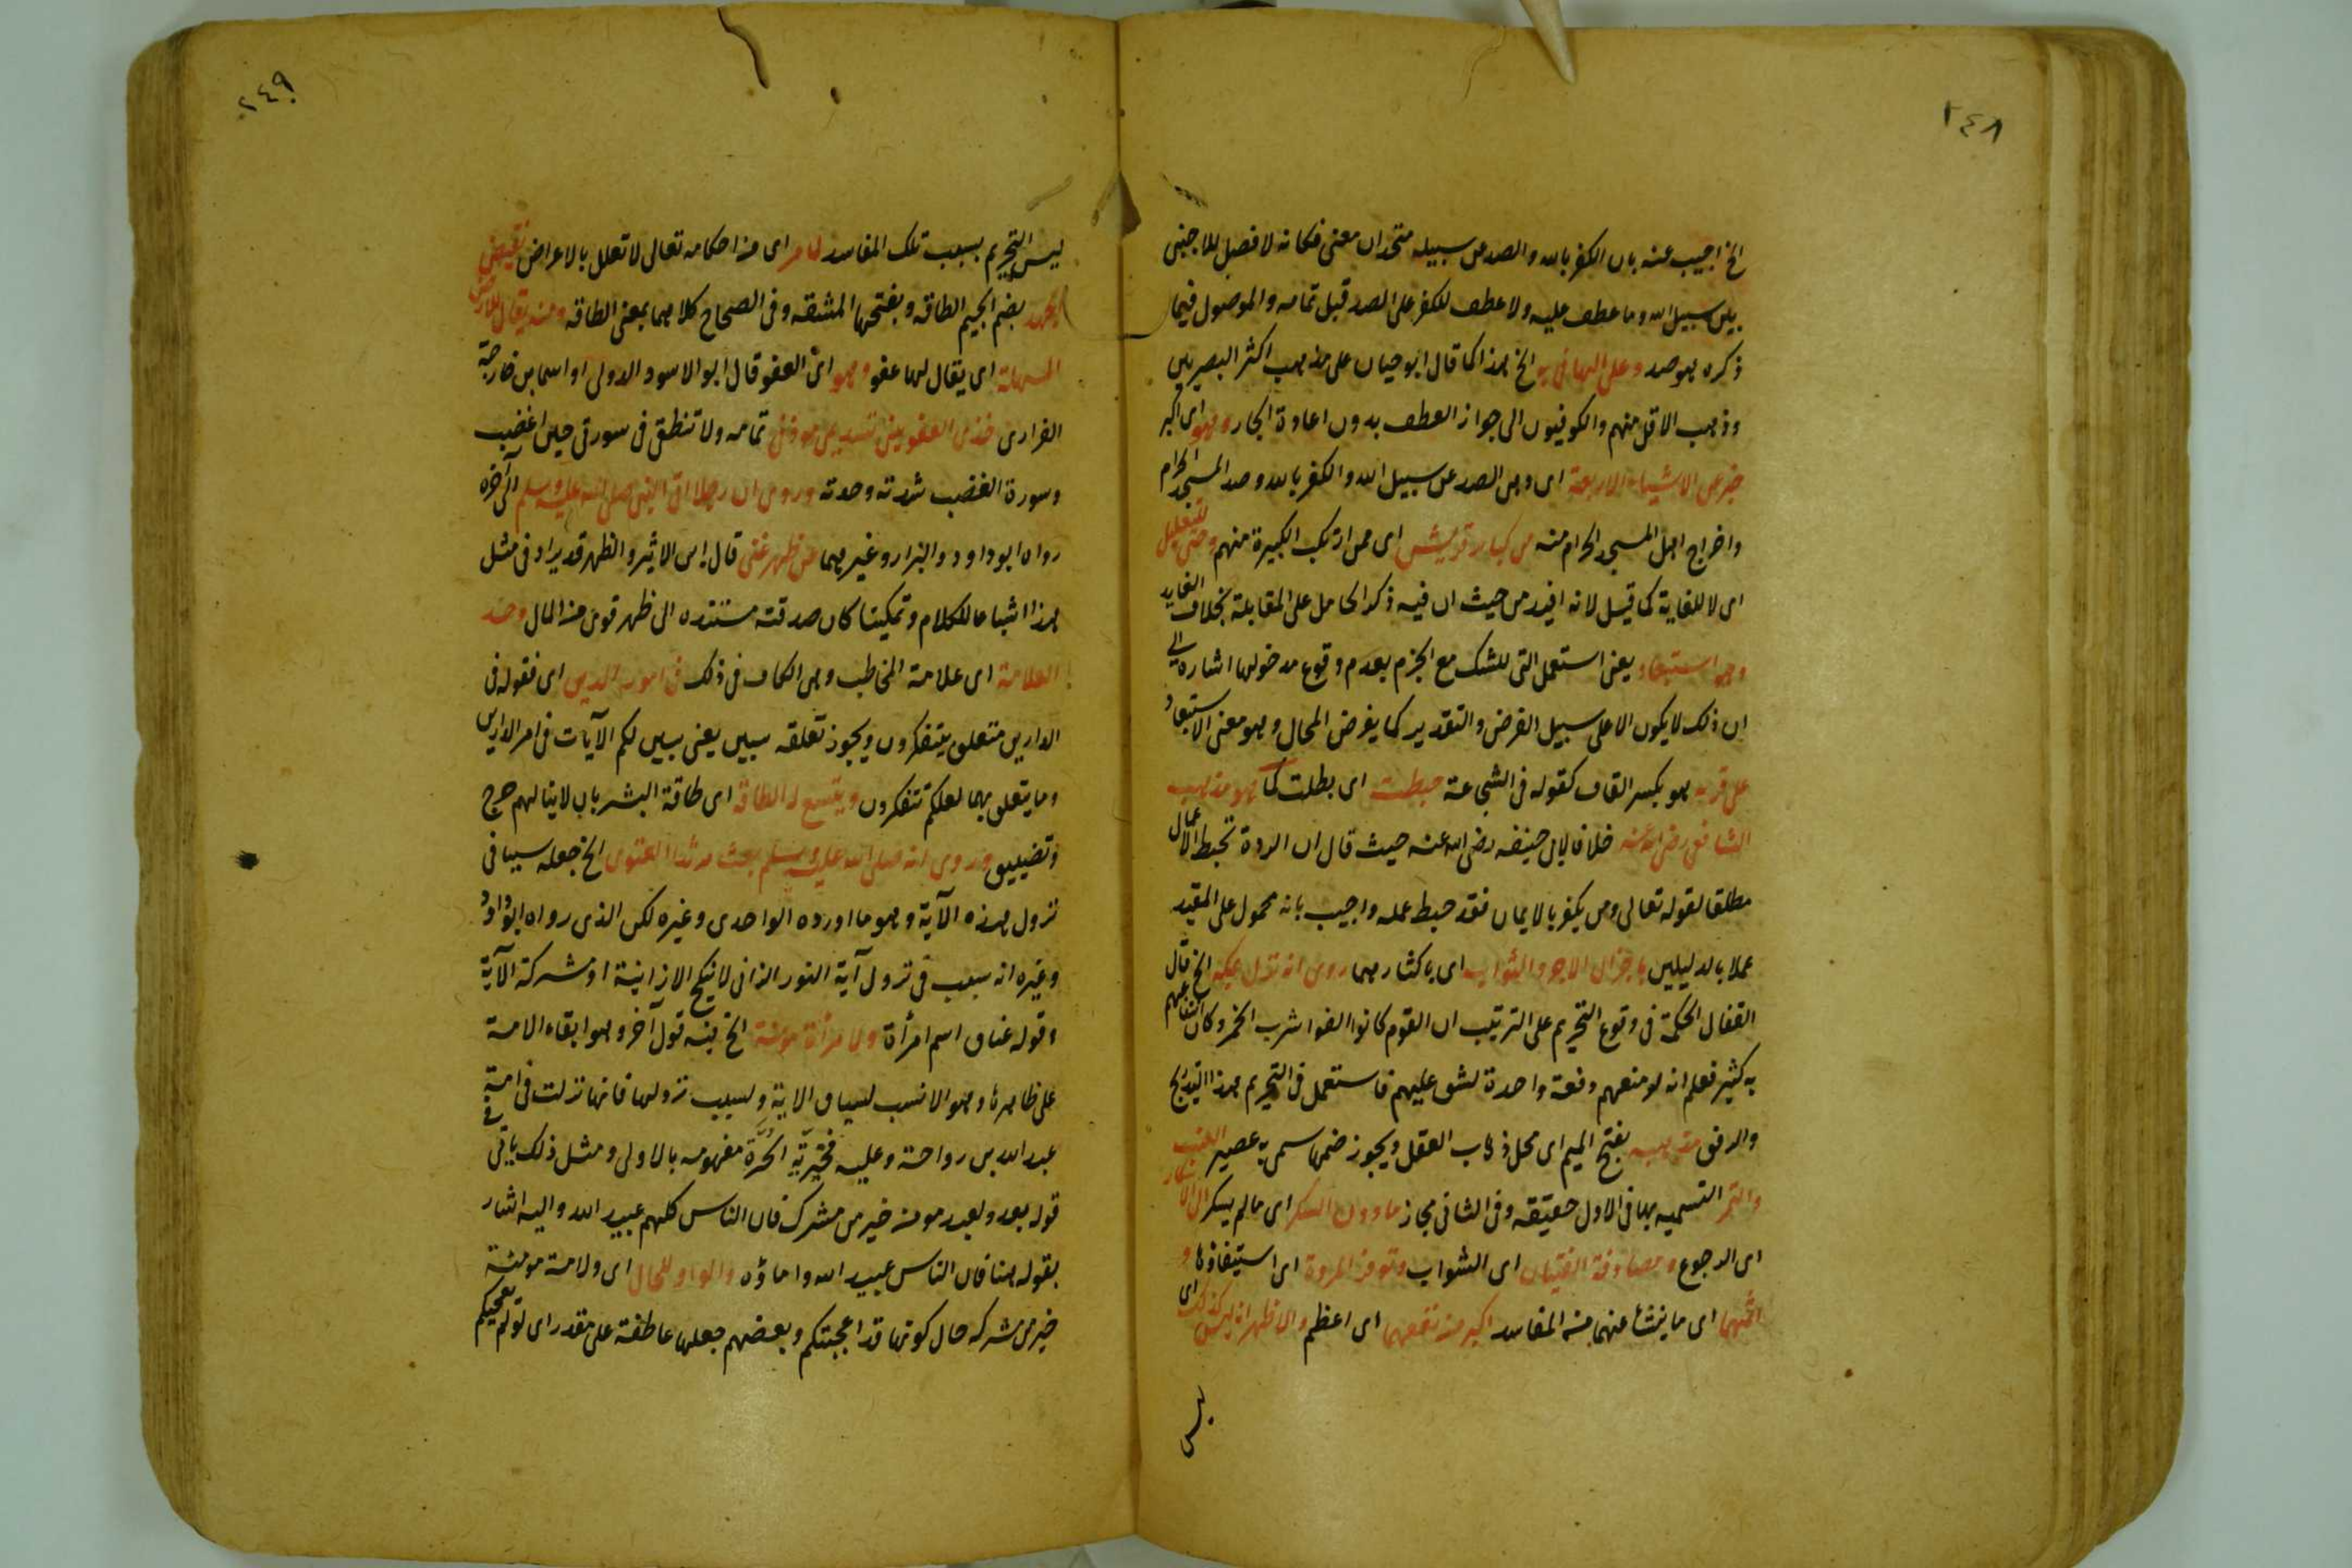 ٢٤٨
الخ اجيب عنه بان الكفر بالله والصد عن سبيله متحدان معنى فكانه لا فصل للاجنبى
بين سبيل الله وما عطف عليه ولا عطف للكفر على الصد قبل تمامه والموصول فيما
ذكره هو صد وعلى الهاء فى به الخ هذا كما قال ابو حيان على مذهب اكثر البصريين
وذهب الاقل منهم والكوفيون الى جواز العطف بدون اعادة الجار وهو اى اكبر
خبر عن الاشياء الاربعة اى وهى الصد عن سبيل الله والكفر بالله وصد المسجد الحرام
واخراج اهل المسجد الحرام منه من كبار قريش اى ممن ارتكب الكبيرة منهم وحتى للتعليل
اى لا للغاية كما قيل لانه افيد من حيث ان فيه ذكر الحامل على المقابلة بخلاف الغاية
وهو استبعاد يعنى استعمل التى للشك مع الجزم بعدم وقوع مدخولها اشارة الى
ان ذلك لا يكون الا على سبيل الفرض والتقدير كما يفرض المحال وهو معنى الاستبعاد
على قرنه هو بكسر القاف كقوله فى الشجاعة حبطت اى بطلت كما هو مذهب
الشافعى رضى الله عنه خلافا لابى حنيفه رضى الله عنه حيث قال ان الردة تحبط الاعمال
مطلقا لقوله تعالى ومن يكفر بالايمان فقد حبط عمله واجيب بانه محمول على المقيد
عملا بالدليلين باجزال الاجر والثواب اى باكثارهما روى انه نزل بمكة الخ قال
القفال الحكمة فى وقوع التحريم على الترتيب ان القوم كانوا الفوا شرب الخمر وكان انتفاعهم
به كثير فعلم انه لو منعهم دفعة واحدة لشق عليهم فاستعمل فى التحريم هذا التدريج
والرفق مذهبة بفتح الميم اى محل ذهاب العقل ويجوز ضمها سمى به عصير العنب
والتمر التسميه بها فى الاول حقيقه وفى الثانى مجاز ما دون السكر اى ما لم يسكر الى الانكار
اى الرجوع ومصادقة الفتيان اى الشواب وتوفر المروة اى استيفاؤها و
اثمهما اى ما ينشأ عنهما من المفاسد اكبر من نفعهما اى اعظم والاظهر انه ليس كذلك اى
ليس
٢٤٩
ليس التحريم بسبب تلك المفاسد لما مر اى من احكامه تعالى لا تعلل بالاعراض نقيض
الجهد بضم الجيم الطاقه وبفتحها المشقه وفى الصحاح كلاهما بمعنى الطاقه ومنه يقال للارض
السهلة اى يقال لها عفو وهو اى العفو قال ابو الاسود الدولى او اسما بن خارجة
الفزارى خذى العفو منى تستديمى مودتى تمامه ولا تنطقى فى سورتى حين اغضب
وسورة الغضب شدته وحدته وروى ان رجلا اتى النبى صلى الله عليه وسلم الى آخره
رواه ابو داود والبزار وغيرهما عن ظهر غنى قال ابن الاثير والظهر قد يراد فى مثل
هذا اشباعا للكلام وتمكينا كان صدقته مستنده الى ظهر قوى من المال وحد
العلامة اى علامة المخاطب وهى الكاف فى ذلك فى امور الدين اى فقوله فى
الدارين متعلق بيتفكرون ويجوز تعلقه بيبين يعنى يبين لكم الآيات فى امر الدارين
وما يتعلق بهما لعلكم تتفكرون ويتسع له الطاقة اى طاقة البشر بان لا ينالهم حرج
وتضييق وروى انه صلى الله عليه وسلم بعث مرثدا الغنوى الخ جعله سببا فى
نزول هذه الآية وهو ما اورده الواحدى وغيره لكن الذى رواه ابو داود
وغيره انه سبب فى نزول آية النور الزانى لا ينكح الا زانية او مشركة الآية
وقوله عناق اسم امرأة ولامرأة مؤمنة الخ فيه قول آخر وهو ابقاء الامة
على ظاهرها وهو الانسب لسياق الاية ولسبب نزولها فانها نزلت فى امة
عبد الله بن رواحة وعليه فخيرية الحرة مفهومه بالاولى ومثل ذلك يأتى فى
قوله بعد ولعبد مومن خير من مشرك فان الناس كلهم عبيد الله واليه اشار
بقوله هنا فان الناس عبيد الله واماؤه والواو للحال اى ولامة مومنة
خير من مشركه حال كونها قد اعجبتكم وبعضهم جعلها عاطفة على مقدر اى لو لم تعجبكم